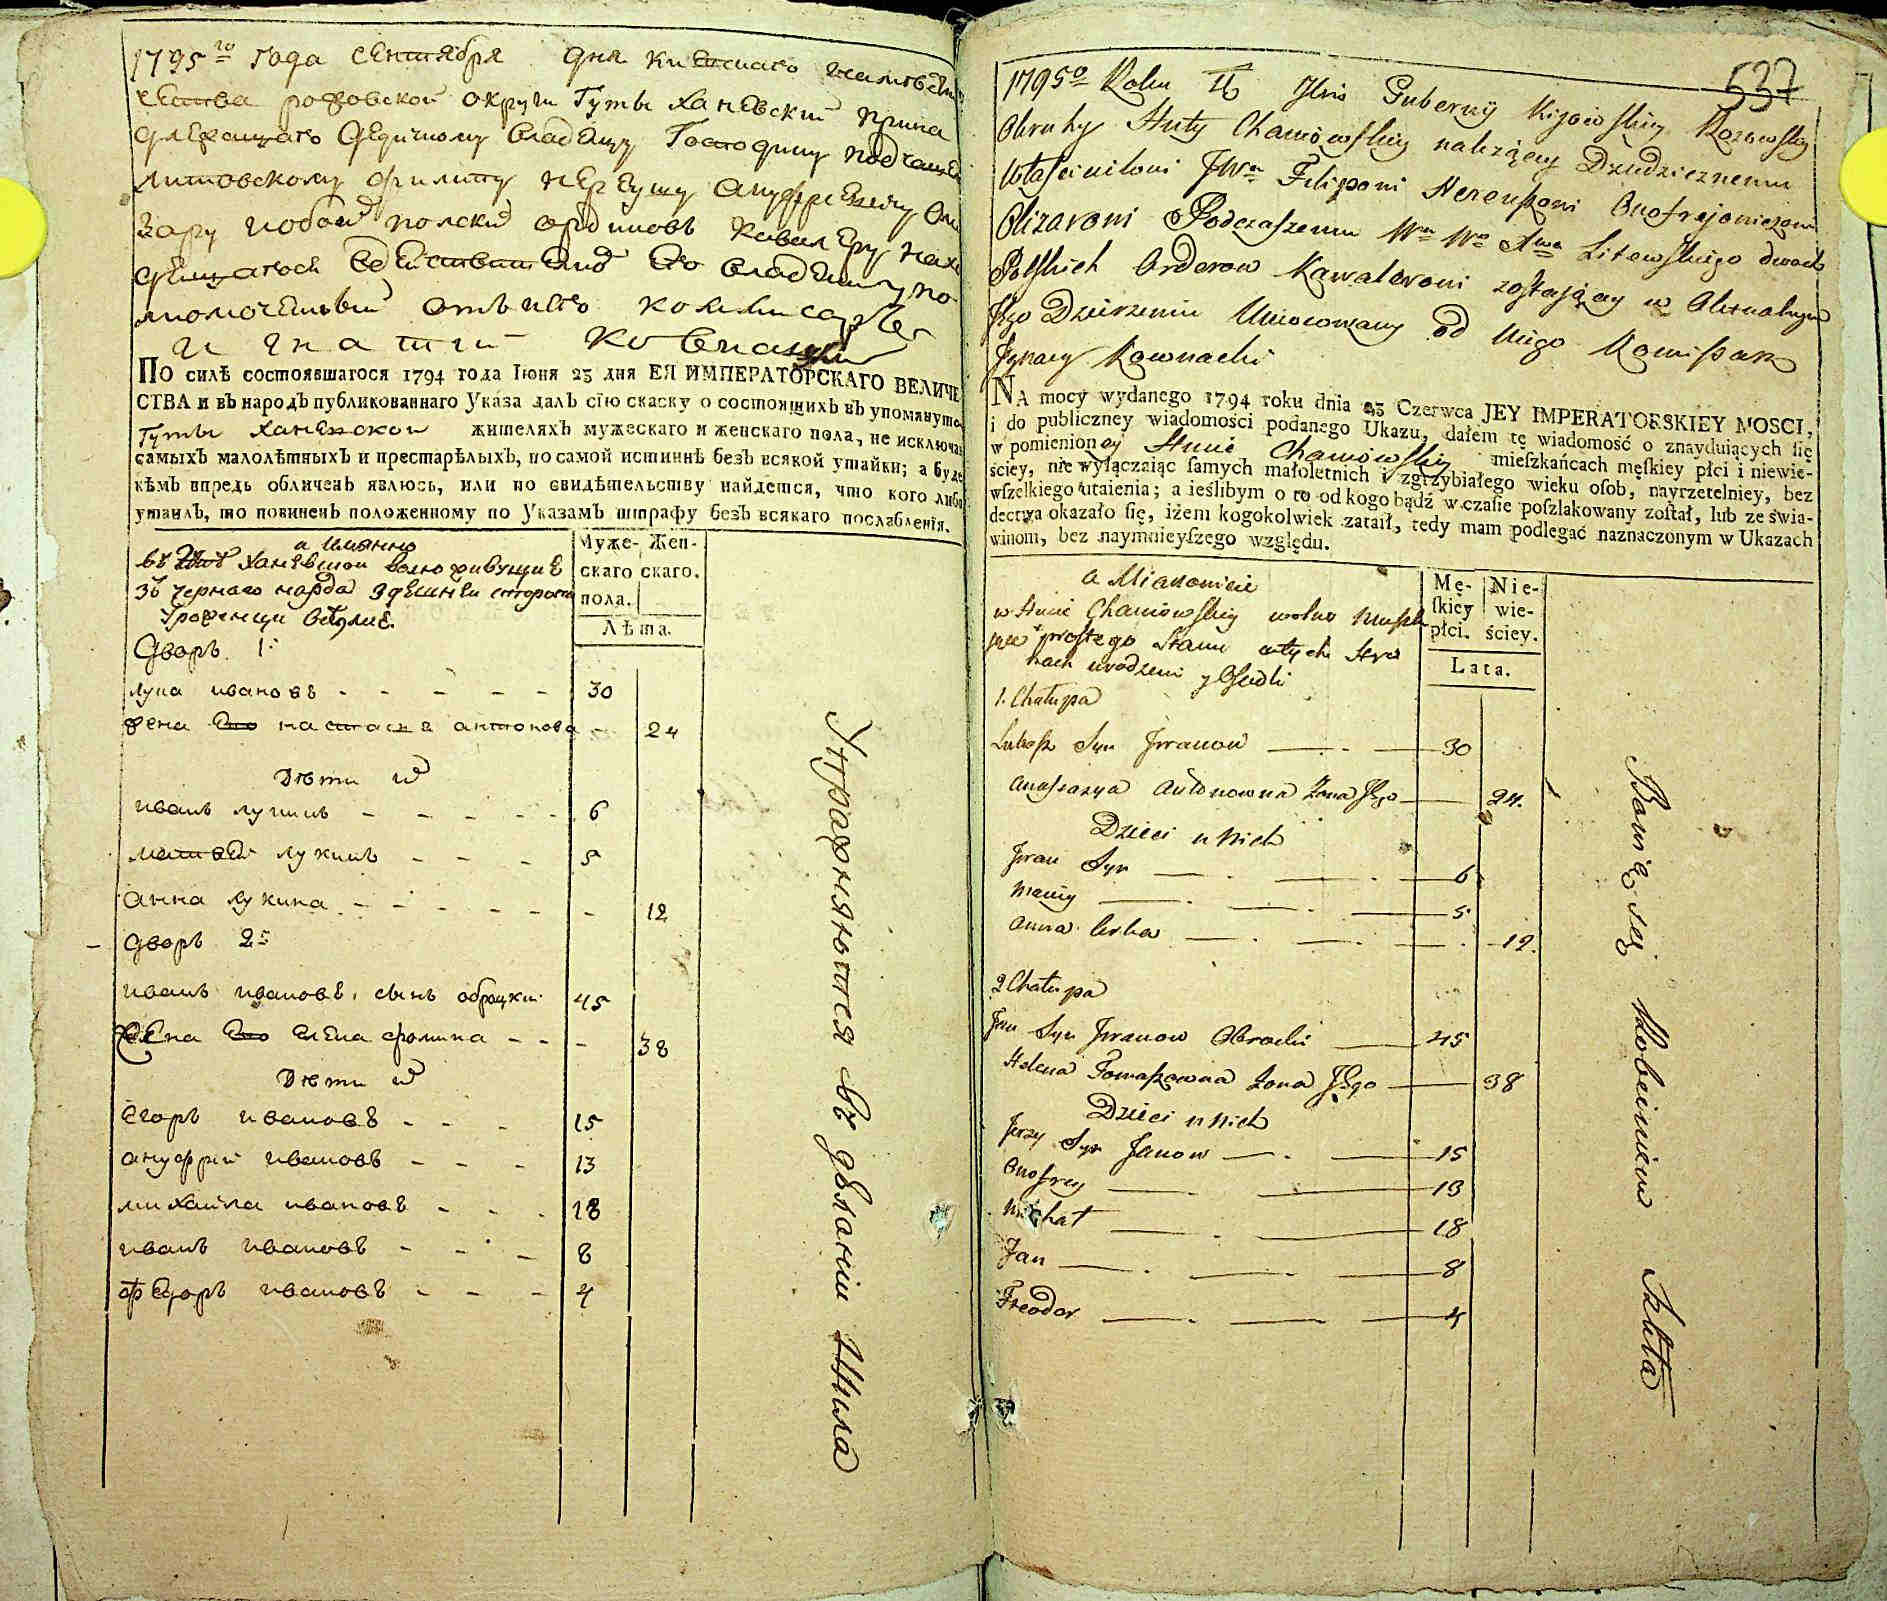 1795го года сентября дня киевскаго намѣсни
чества рожовской округи Гуты ханевский прина
длежащаго Дедичному владелцу Господину подчаше
литовскому филипу нереушу ануфреевичу Оли
зару ꙇ обоей полский ординовъ кавалеру нахо
дящагося
владении упо
мочений отъ него комисаръ
игнатий ковнацкий
По силѣ состоявшагося 1794 года Iюня 23 дня ЕЯ ИМПЕРАТОРСКАГО ВЕЛИЧЕ
СТВА и въ народъ публикованнаго Указа далъ сїю скаску о состоящихъ въ упомянуто
Гуты ханевской жителяхъ мужескаго и женскаго пола, не исключа
самыхъ малолѣтныхъ и престарѣлыхъ, по самой истиннѣ безъ всякой утайки; а буде
кѣмъ впредь обличенъ явлюсь, или по свидѣтельству найдется, что кого либо
утаилъ, то повиненъ положенному по Указамъ штрафу безъ всякаго послабленїя.
а имянно
въ ханевской волно живущие
зъ черного народа здешней сторон
Урожении
Муже-
скаго
пола.
Жен-
скаго.
Лѣта.
дворъ 1й
лука ивановъ - - - - - 30
жена его настася антонова - 24
Дети их
иванъ лукинъ - - - - - 6
матвей лукинъ - - - 5
анна лукина - - - - - - 12
дворъ 2й
иванъ ивановъ сынъ оброцки 45
жена его елена фомина - - - 38
Дети их
егоръ ивановъ - - - 15
ануфрий ивановъ - - - 13
михайла ивановъ - - - 18
иванъ ивановъ - - - 8
федоръ ивановъ - - - 4
Упражняются въ деланіи шкла
537
1795o Roku Dnia Gubernij Kijowskiey Rozowskiey
Okruhy Huty Chaniowskiey należącey Dziedzicznemu
Własicielowi JWu Filiponi Nereuszowi Onofrejowiczowi
Olizarowi Podczaszemu Wo Xwa Litewskiego dwoch
Polskich Orderow Kawalerowi zostającey w Aktualnym
Jego Dzierzeniu Umocowany od Niego Komissarz
Jgnacy Kownacki
NA mocy wydanego 1794 roku dnia 23 Czerwca JEY IMPERATORSKIEY MOSCI,
i do publiczney wiadomości podanego Ukazu, dałem tę wiadomość o znayduiących się
w pomienioney Hucie Chaniowskiey mieszkańcach męskiey płci i niewie-
ściey, nie wyłączaiąc samych małoletnich i zgrzybiałego wieku osob, nayrzetelniey, bez
wszelkiego utaienia; a ieślibym o to od kogo bądź w czasie poszlakowany został, lub ze świa-
dectwa okazało się, iżem kogokolwiek zataił, tedy mam podlegać naznaczonym w Ukazach
winom, bez naymnieyszego względu.
a Mianowicie
w Hucie Chaniowskiey wolno mieszka
jące prostego Stanu wtych Stro
nach urodzeni y Osiedli
Mę-
skiey
płci.
Nie-
wie-
ściey.
Lata.
1. Chałupa
Łukasz Syn Jwanow 30
Anastazya Antonowna Żona Jego 24.
Dzieci u Nich
Jwan Syn 6
Maciey 5
Anna Corka 12.
2 Chałupa
Jan Syn Jwanow Obrocki 45
Helena Tomaszowna Żona Jego 38
Dzieci u Nich
Jerzy Syn Janow 15
Onofrey 13
Michał 18
Jan 8
Theodor 4
Bawią się Robieniem Szkła